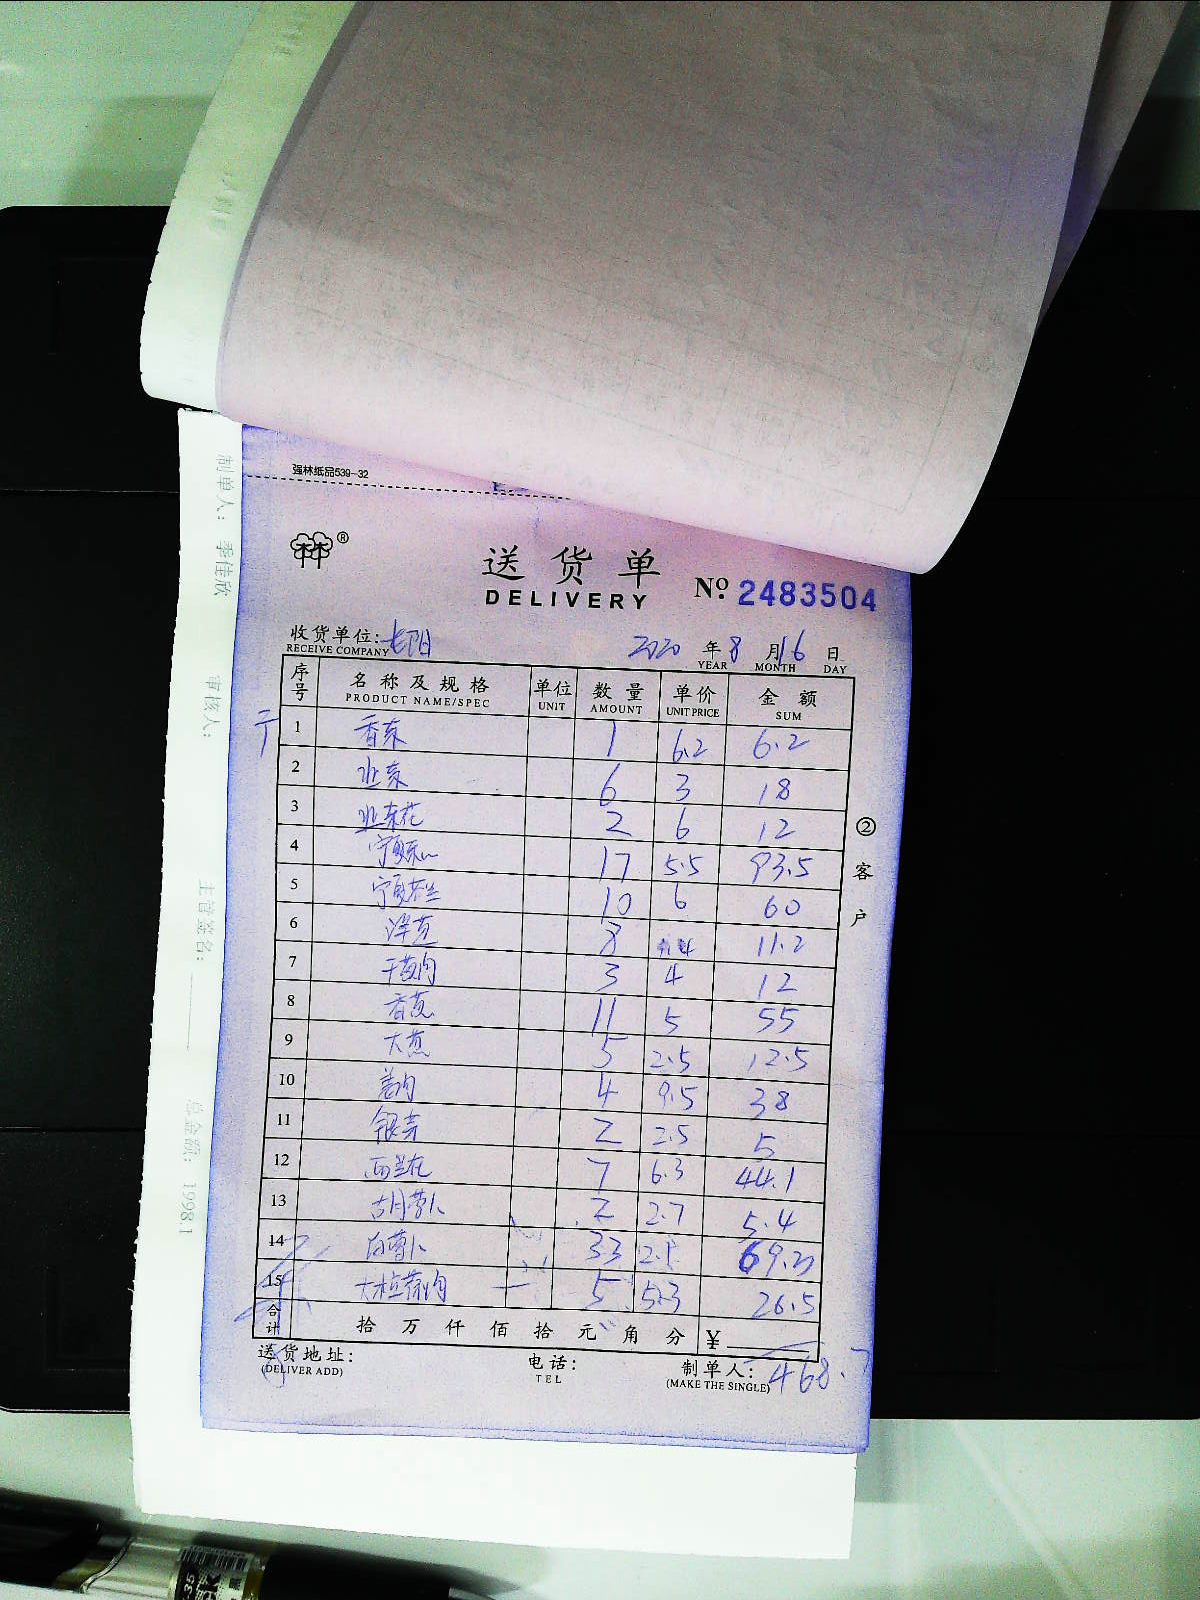 强林纸品539-32
林®
送货单
DELIVERY
No. 2483504
收货单位:长阳 2020年8月16日
RECEIVE COMPANY YEAR MONTH DAY
序号 名称及规格 单位 数量 单价 金额
PRODUCT NAME/SPEC UNIT AMOUNT UNIT PRICE SUM
1 香菜 1 6.2 6.2
2 韭菜 6 3 18
3 韭菜花 2 6 12
4 宁夏菜心 17 5.5 93.5
5 宁夏芥兰 10 6 60
6 洋葱 8 1.4 11.2
7 干葱肉 3 4 12
8 香葱 11 5 55
9 大葱 5 2.5 12.5
10 姜肉 4 9.5 38
11 银芽 2 2.5 5
12 西兰花 7 6.3 44.1
13 胡萝卜 2 2.7 5.4
14 白萝卜 33 2.1 69.3
15 大粒蒜肉 5 5.3 26.5
合计 拾万仟佰拾元角分 ¥
468.7
送货地址: 电话: 制单人:
(DELIVER ADD) TEL (MAKE THE SINGLE)
②客户
制单人: 季佳欣
审核人:
主管签名:
总金额: 1998.1